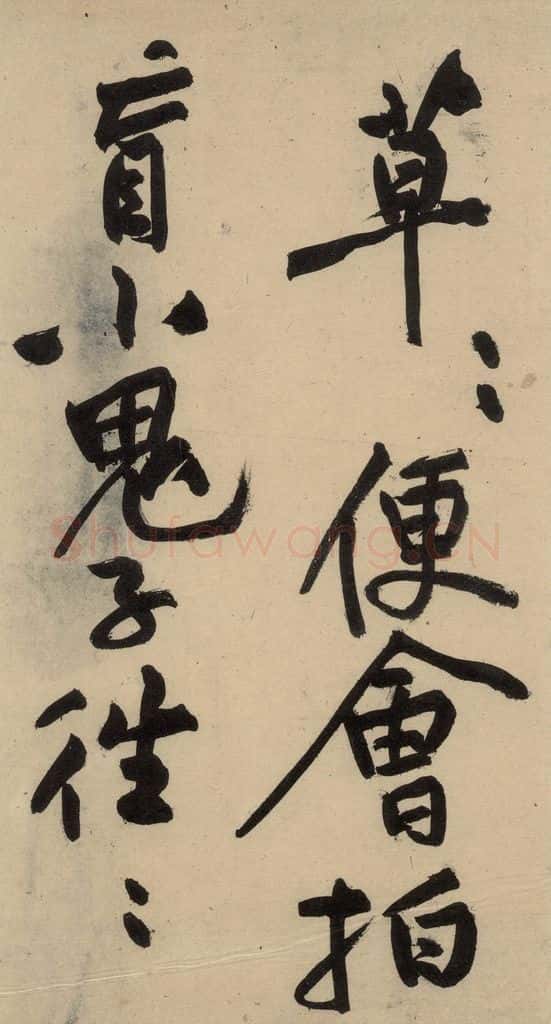 草〻便會拍
盲小鬼子往〻
Shufawang.CN